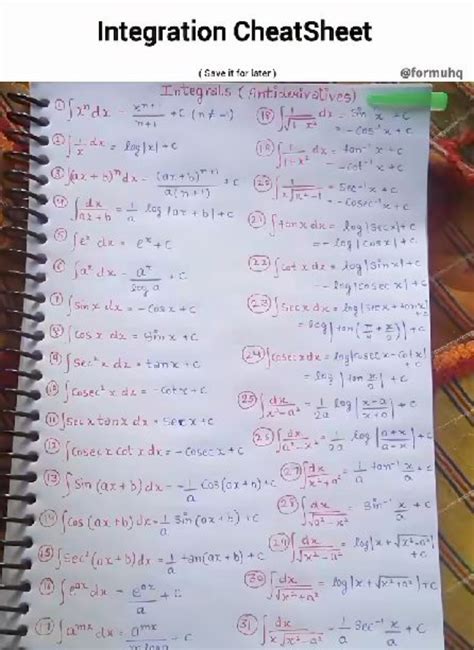 Integration CheatSheet
( Save it for later )
@formuhq
Integrals ( Antiderivatives)
① ∫x^n dx = x^(n+1)/(n+1) + C (n ≠ -1)
② ∫1/x dx = log|x| + C
③ ∫(ax + b)^n dx = (ax + b)^(n+1)/a(n+1) + C
④ ∫dx/(ax + b) = 1/a log|ax + b| + C
⑤ ∫e^x dx = e^x + C
⑥ ∫a^x dx = a^x/log a + C
⑦ ∫sinx dx = -cosx + C
⑧ ∫cosx dx = sinx + C
⑨ ∫sec²x dx = tanx + C
⑩ ∫cosec²x dx = -cotx + C
⑪ ∫secx tanx dx = secx + C
⑫ ∫cosecx cotx dx = -cosecx + C
⑬ ∫sin(ax + b) dx = -1/a cos(ax + b) + C
⑭ ∫cos(ax + b) dx = 1/a sin(ax + b) + C
⑮ ∫sec²(ax + b) dx = 1/a tan(ax + b) + C
⑯ ∫e^(ax) dx = e^(ax)/a + C
⑰ ∫a^(mx) dx = a^(mx)/ + C
⑱ ∫1/√(1-x²) dx = sin⁻¹x + C
= -cos⁻¹x + C
⑲ dx = tan⁻¹x + C
= -cot⁻¹x + C
⑳ ∫1/(x√(x²-1)) = sec⁻¹x + C
= -cosec⁻¹x + C
㉑ ∫tanx dx = log|secx| + C
= -log|cosx| + C
㉒ ∫cotx dx = log|sinx| + C
= -log|cosecx| + C
㉓ ∫secx dx = log|secx + tanx| + C
= log|tan(π/4 + x/2)| + C
㉔ ∫cosecx dx = log|cosecx - cotx| + C
= log|tan x/2| + C
㉕ ∫dx/(x²-a²) = 1/2a log|(x-a)/(x+a)| + C
㉖ ∫dx/(a²-x²) = 1/2a log|(a+x)/(a-x)| + C
㉗ ∫dx/(x²+a²) = 1/a tan⁻¹ x/a + C
㉘ = sin⁻¹ x/a + C
㉙ ∫dx/√(x²-a²) = log|x + √(x²-a²)| + C
㉚ ∫dx/√(x²+a²) = log|x + √(x²+a²)| + C
㉛ ∫dx/(x√(x²-a²)) = 1/a sec⁻¹ x/a + C